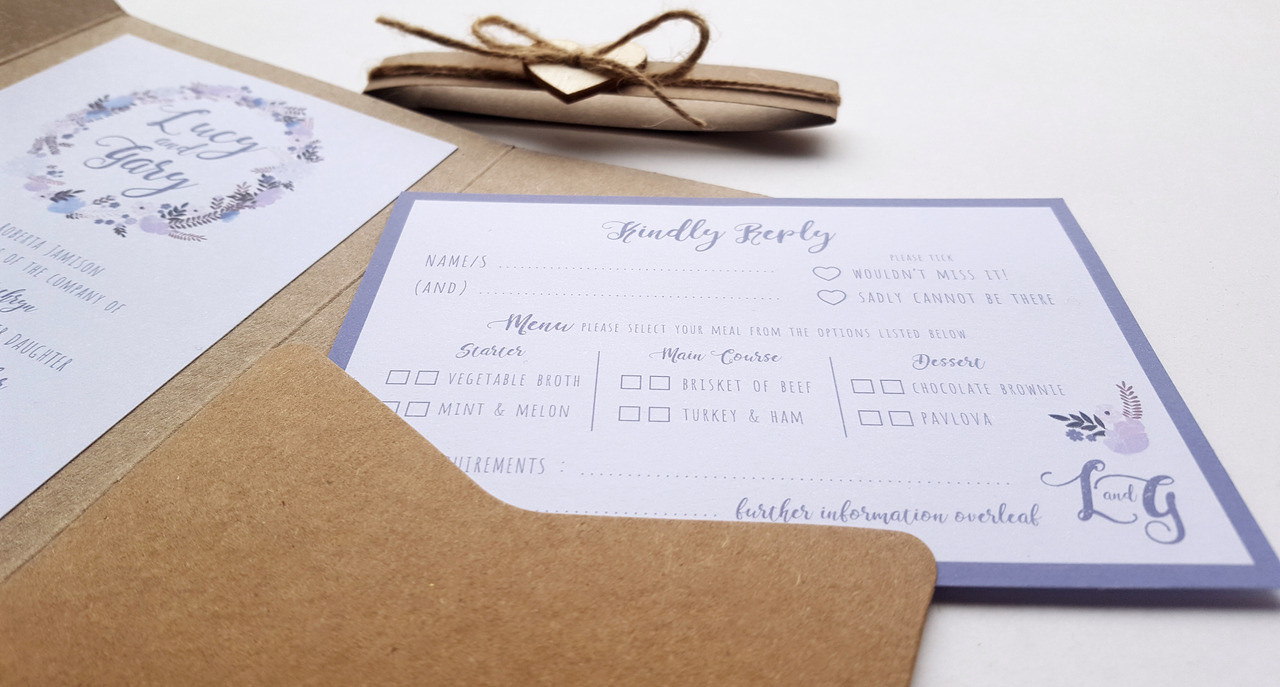 Lucy
and
Gary
ROBERTA JAMISON
OF THE COMPANY OF
DAUGHTER
Kindly Reply
NAME/S
(AND)
PLEASE TICK
WOULDN'T MISS IT!
SADLY CANNOT BE THERE
Menu PLEASE SELECT YOUR MEAL FROM THE OPTIONS LISTED BELOW
Starter
VEGETABLE BROTH
MINT & MELON
Main Course
BRISKET OF BEEF
TURKEY & HAM
Dessert
CHOCOLATE BROWNIE
PAVLOVA
UIREMENTS :
further information overleaf
L and G